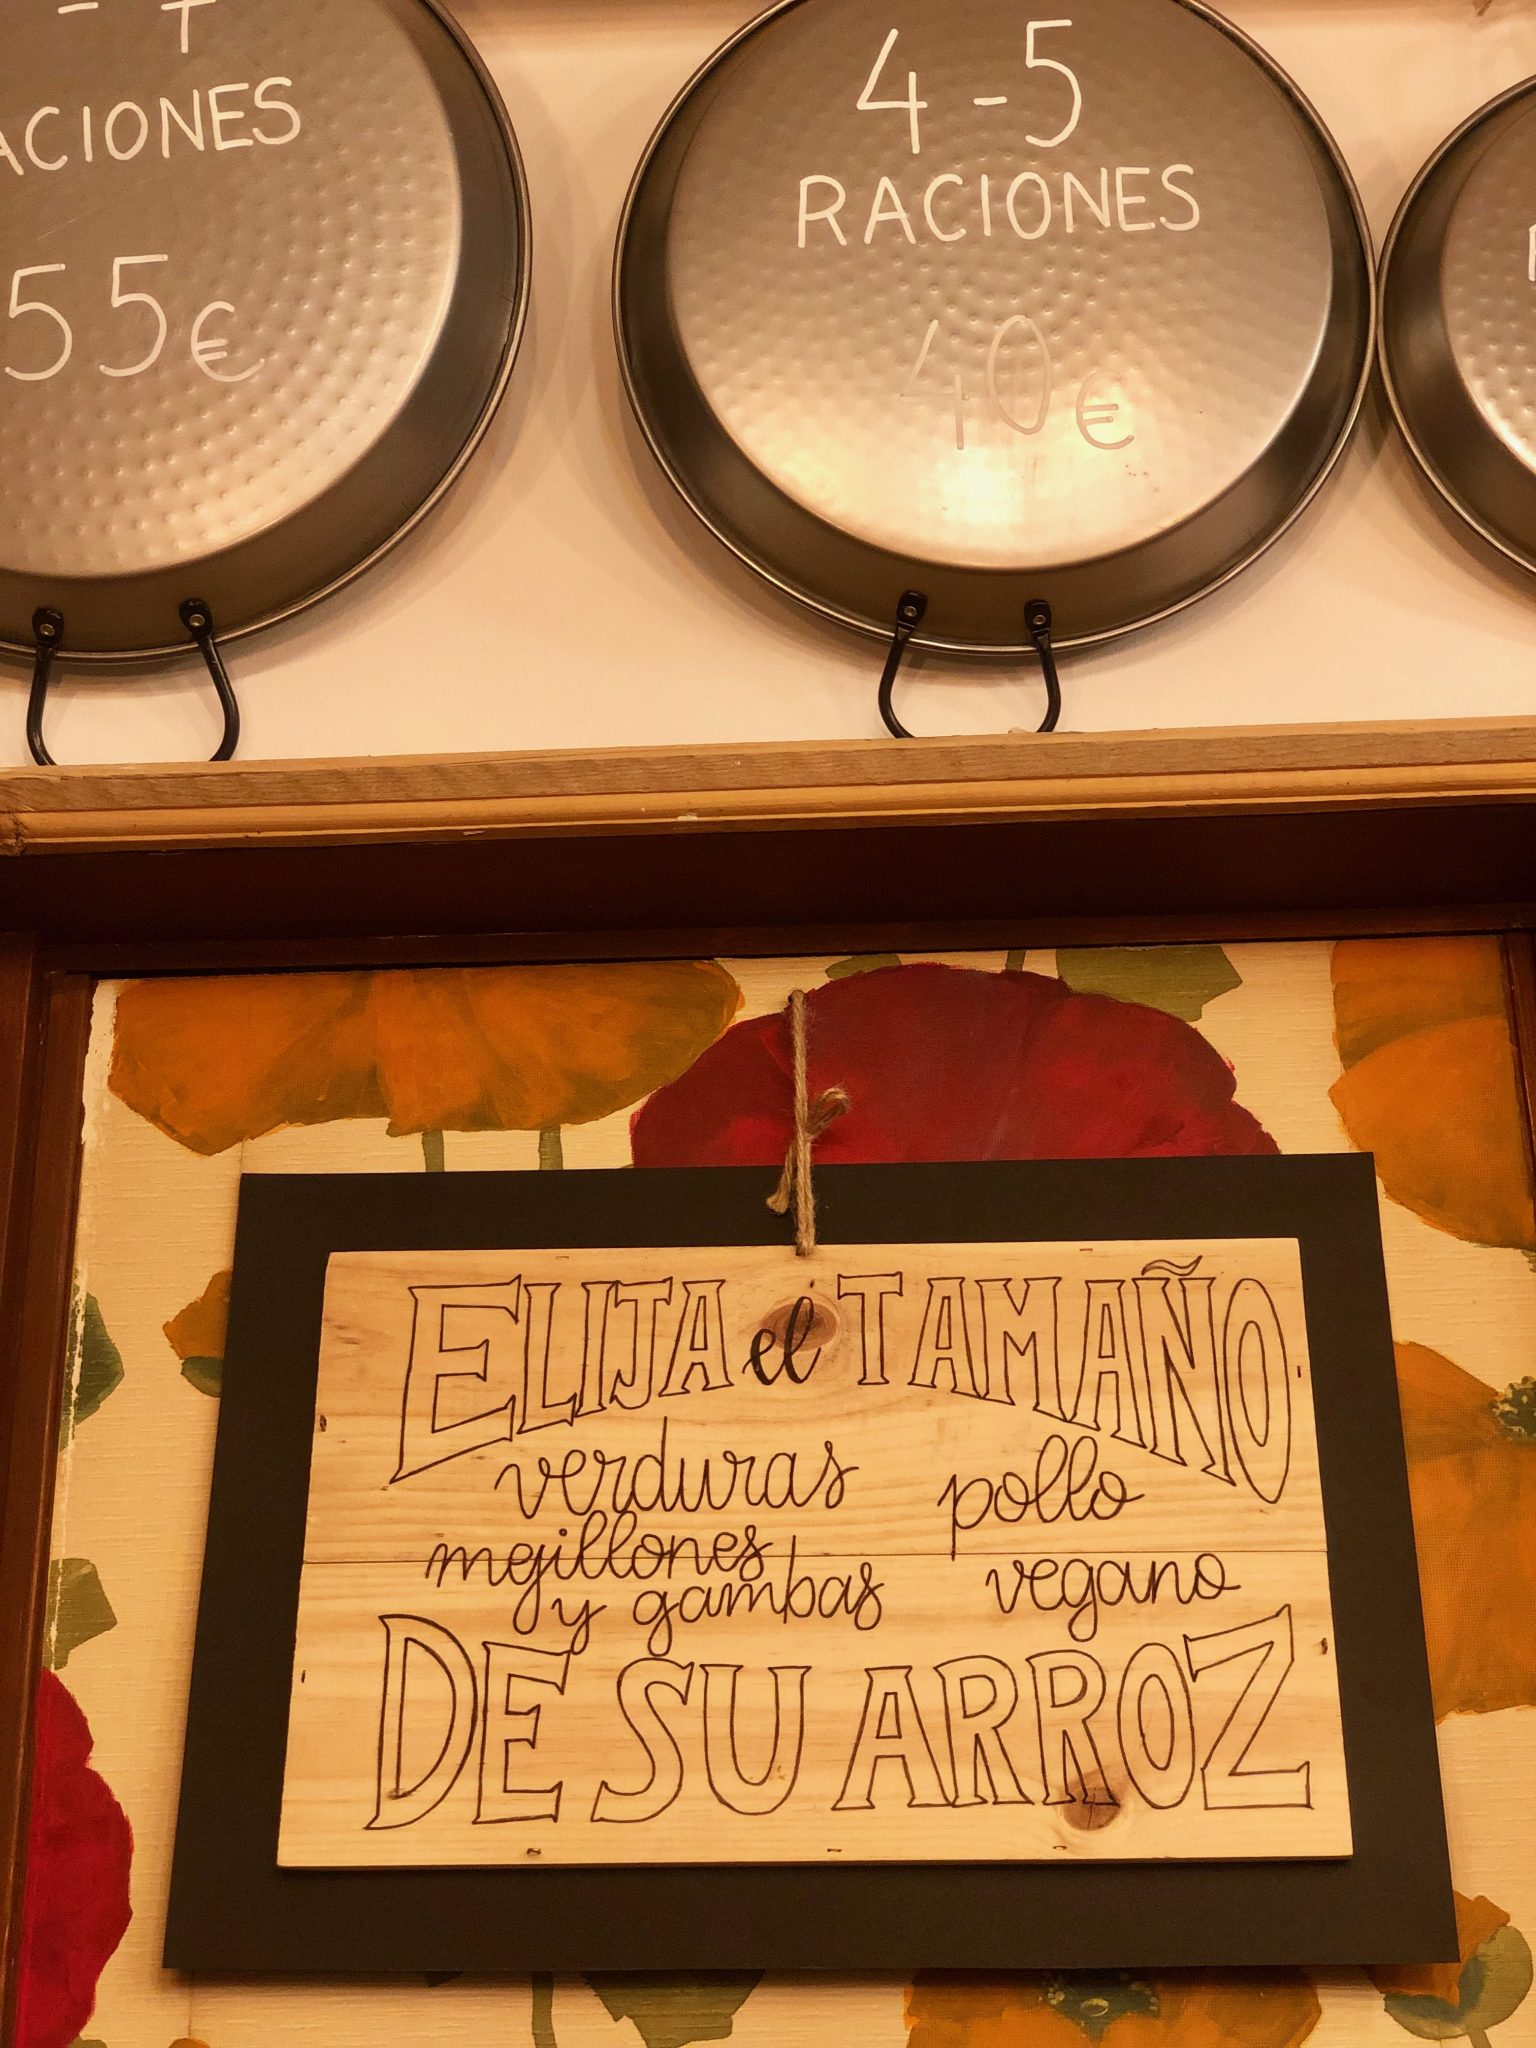 4-5
RACIONES
40€
55€
ELIJA el TAMAÑO
verduras pollo
mejillones
y gambas vegano
DE SU ARROZ